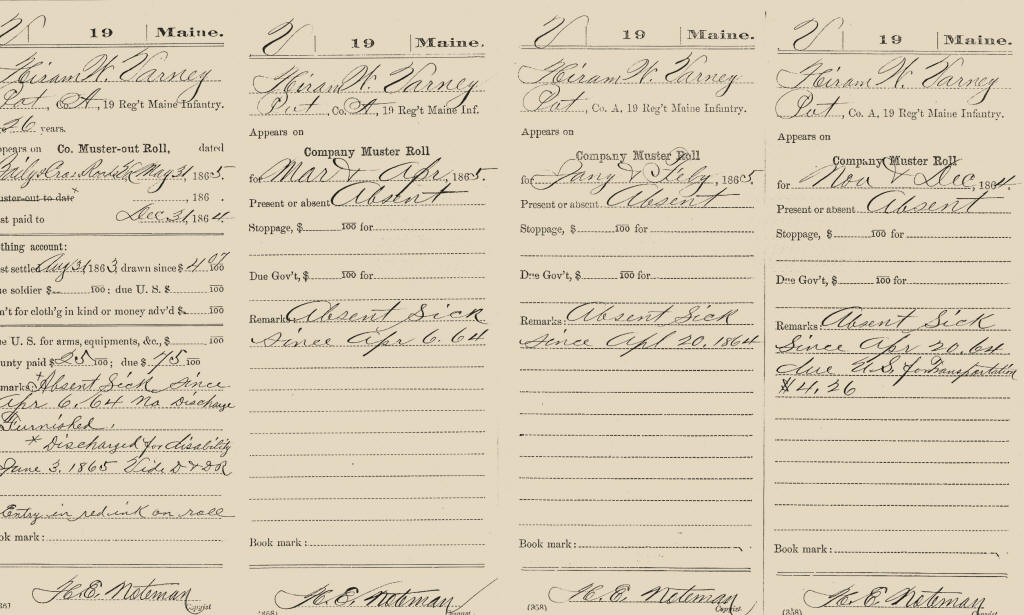 V 19 Maine.
Hiram W. Varney
Pvt, Co. A, 19 Reg't Maine Infantry.
26 years.
pears on Co. Muster-out Roll, dated
May 31, 1865.
uster-out to date x , 186 .
st paid to Dec 31, 1864
thing account:
st settled Aug 31, 1863; drawn since $ 4 07/100
ue soldier $ 100; due U. S. $ 100
n't for cloth'g in kind or money adv'd $ 100
ue U. S. for arms, equipments, &c., $ 100
unty paid $ 25 100; due $ 75 100
marks: + Absent Sick since
Apr 6. 64 No Discharge
Furnished.
* Discharged for disability
June 3. 1865 Vid. D & D R
Entry in red ink on roll
ok mark:
H. E. Noteman
Copyist
V 19 Maine.
Hiram W. Varney
Pvt, Co. A, 19 Reg't Maine Inf.
Appears on
Company Muster Roll
for Mar & Apr, 1865.
Present or absent Absent
Stoppage, $ 100 for
Due Gov't, $ 100 for
Remarks: Absent Sick
since Apr 6. 64
Book mark:
H. E. Noteman
(358) Copyist
V 19 Maine.
Hiram W. Varney
Pvt, Co. A, 19 Reg't Maine Infantry.
Appears on
Company Muster Roll
for Jany & Feby, 1865.
Present or absent Absent
Stoppage, $ 100 for
Due Gov't, $ 100 for
Remarks: Absent Sick
since Apl 20. 1864
Book mark:
H. E. Noteman
(358) Copyist
V 19 Maine.
Hiram W. Varney
Pvt, Co. A, 19 Reg't Maine Infantry.
Appears on
Company Muster Roll
for Nov & Dec, 1864.
Present or absent Absent
Stoppage, $ 100 for
Due Gov't, $ 100 for
Remarks: Absent Sick
Since Apr 20. 64
due U.S. for Transportation
$4.26
Book mark:
H. E. Noteman
(358) Copyist